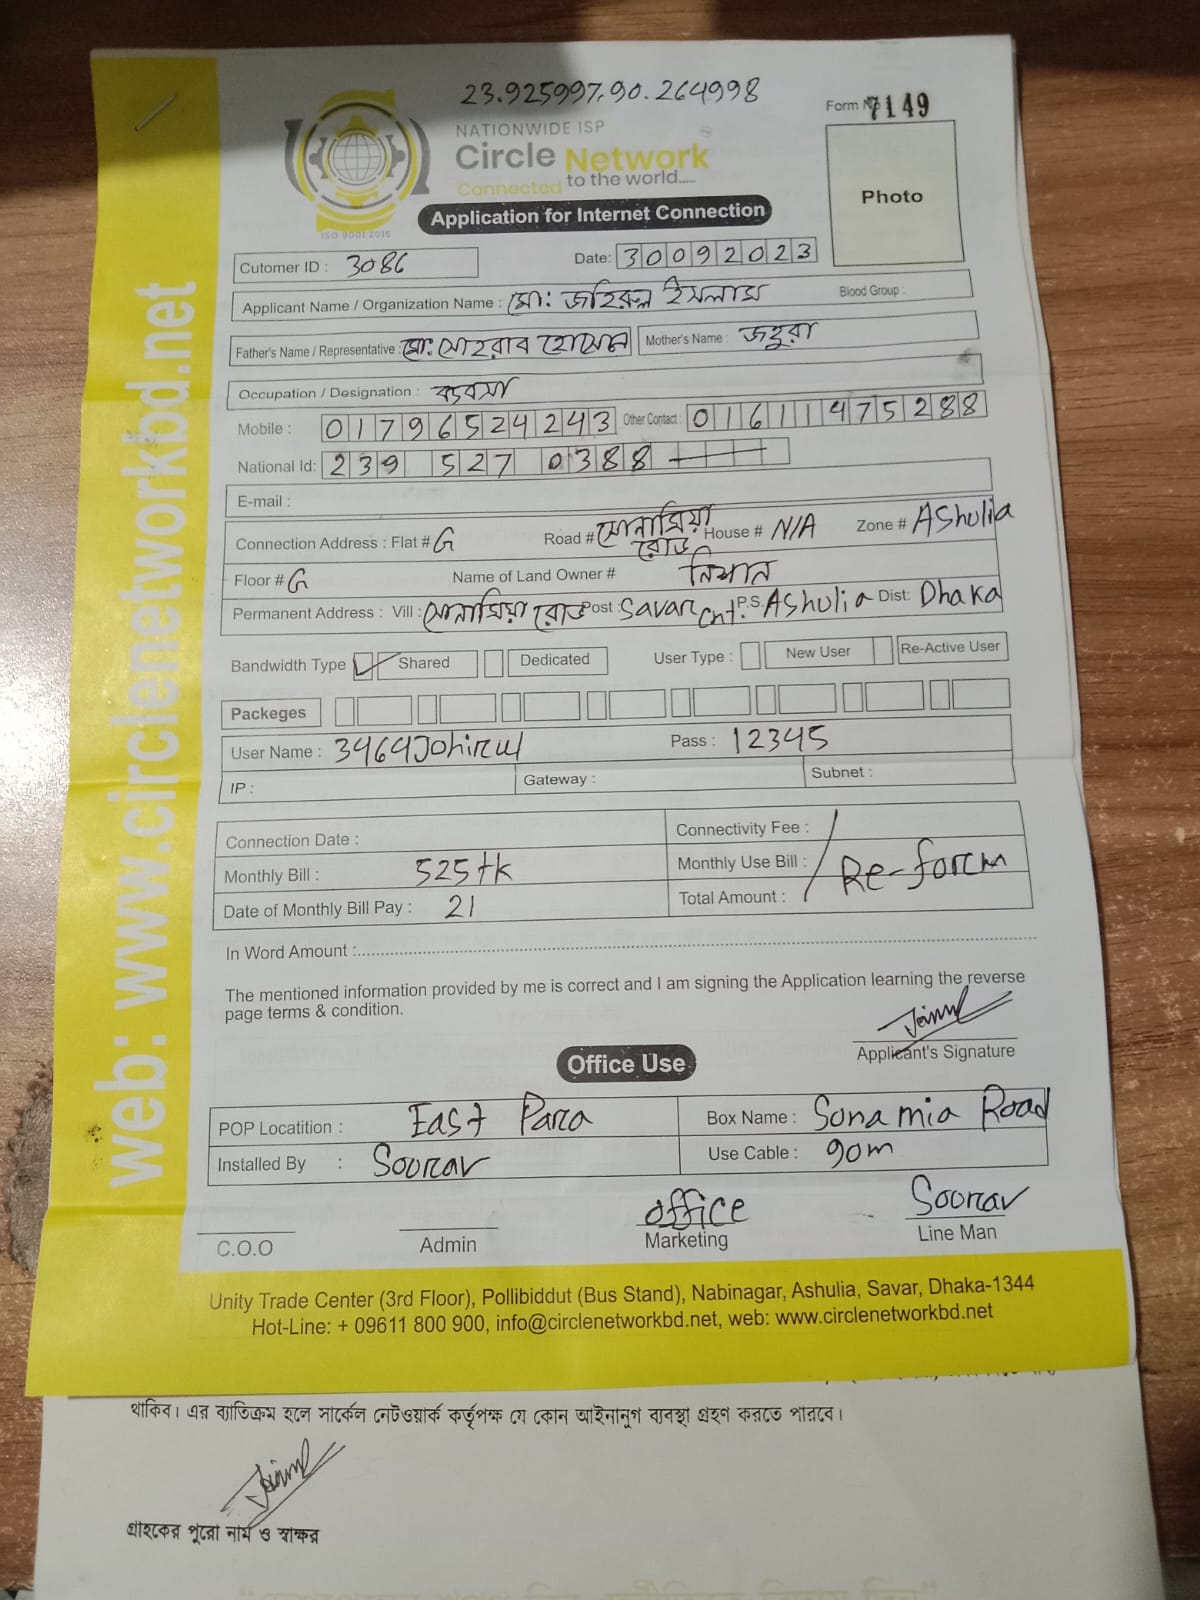 23.925997,90.264998
Form No 7149
NATIONWIDE ISP
Circle Network
Connected to the world.....
ISO 9001:2015
Application for Internet Connection
Photo
Cutomer ID : 3086 Date: 30092023
Applicant Name / Organization Name : মো: জহিরুল ইসলাম Blood Group :
Father's Name / Representative : মো: সোহরাব হোসেন Mother's Name : জহুরা
Occupation / Designation : ব্যবসা
Mobile : 01796524243 Other Contact : 01611475288
National Id: 239 527 0388
E-mail :
Connection Address : Flat # G Road # সোনামিয়া রোড House # N/A Zone # AShulia
Floor # G Name of Land Owner #
Permanent Address : Vill : সোনামিয়া রোড Post : Savar Cnt. P.S: AShulia Dist: Dhaka
Bandwidth Type Shared Dedicated User Type : New User Re-Active User
Packeges
User Name : 3464Johirul Pass : 12345
IP : Gateway : Subnet :
Connection Date : Connectivity Fee :
Monthly Bill : 525tk Monthly Use Bill : Re-form
Date of Monthly Bill Pay : 21 Total Amount :
In Word Amount :
The mentioned information provided by me is correct and I am signing the Application learning the reverse
page terms & condition.
Applicant's Signature
Office Use
POP Locatition : East Para Box Name : Sona mia Road
Installed By : Sourav Use Cable : 90m
C.O.O Admin office Marketing Sourav Line Man
Unity Trade Center (3rd Floor), Pollibiddut (Bus Stand), Nabinagar, Ashulia, Savar, Dhaka-1344
Hot-Line: + 09611 800 900, info@circlenetworkbd.net, web: www.circlenetworkbd.net
web: www.circlenetworkbd.net
থাকিব। এর ব্যতিক্রম হলে সার্কেল নেটওয়ার্ক কর্তৃপক্ষ যে কোন আইনানুগ ব্যবস্থা গ্রহণ করতে পারবে।
গ্রাহকের পুরো নাম ও স্বাক্ষর